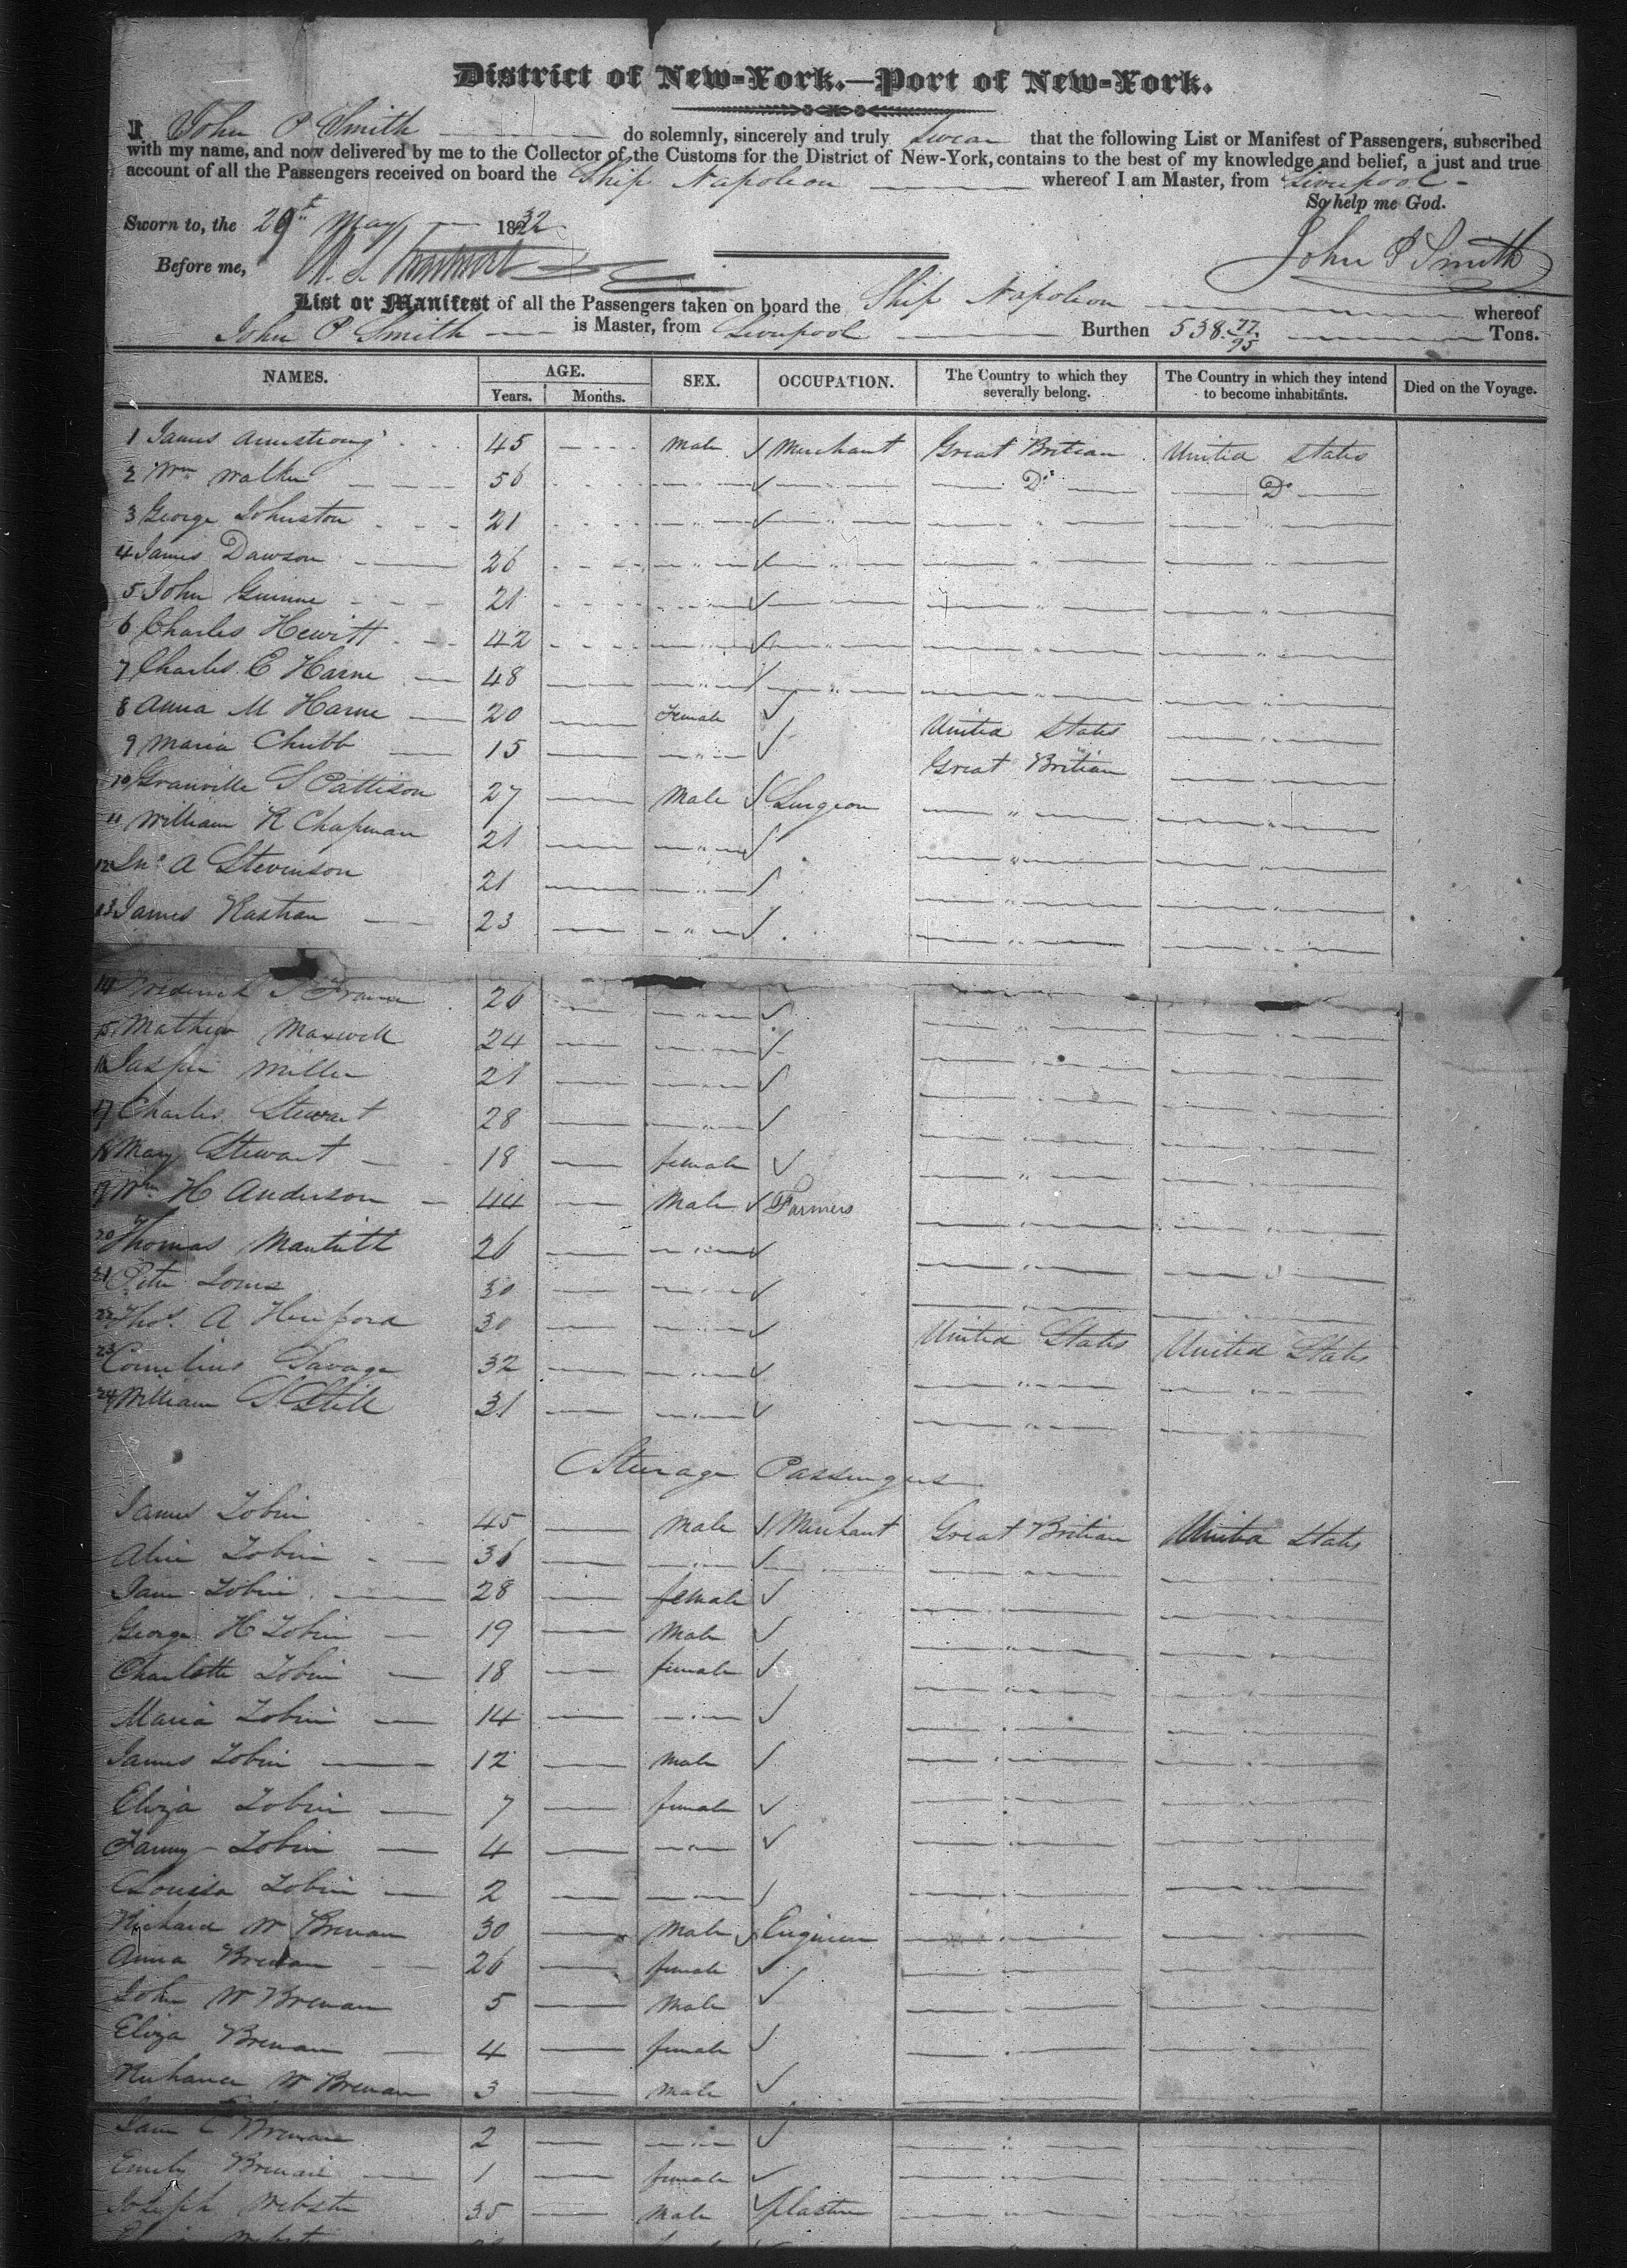 District of New-York.—Port of New-York.
I John P Smith do solemnly, sincerely and truly Swear that the following List or Manifest of Passengers, subscribed
with my name, and now delivered by me to the Collector of the Customs for the District of New-York, contains to the best of my knowledge and belief, a just and true
account of all the Passengers received on board the Ship Napoleon whereof I am Master, from Liverpool
So help me God.
Sworn to, the 29th May 1832
Before me,
John P Smith
List or Manifest of all the Passengers taken on board the Ship Napoleon whereof
John P Smith is Master, from Liverpool Burthen 538 77/95 Tons.
NAMES. AGE. Years. Months. SEX. OCCUPATION. The Country to which they severally belong. The Country in which they intend to become inhabitants. Died on the Voyage.
1 James Armstrong 45 male Merchant Great Britian United States
2 Wm Walker 56 " Do Do
3 George Johnston 21 " " " "
4 James Dawson 26 " " " "
5 John Guinne 21 " "
6 Charles Hewitt 42 " " " "
7 Charles E Harne 48 " " " "
8 Anna M Harne 20 Female United States "
9 Maria Chubb 15 " Great Britian "
10 Granville S Pattison 27 Male Surgeon " "
11 William R Chapman 21 " " "
12 Jno A Stevinson 21 " " "
13 James 23 " " "
14 Frederick 26 " " "
15 Mathew Maxwell 24 " " "
16 Miller 21 " " "
17 Charles Stewart 28 " " "
18 Mary Stewart 18 female " "
19 Wm H Anderson 44 Male Farmers " "
20 Thomas 26 " " "
21 Peter 30 " " "
22 Thos. A 30 " United States United States
23 Cornelius Savage 32 " " "
24 William S Still 31 " " "
Steerage Passengers
James Tobin 45 male Merchant Great Britian United States
Alice Tobin 36 " " "
Jane Tobin 28 female " "
George H Tobin 19 Male " "
Charlotte Tobin 18 female " "
Maria Tobin 14 " " "
James Tobin 12 male " "
Eliza Tobin 7 female " "
Fanny Tobin 4 " " "
Louisa Tobin 2 " " "
Richard W Brenan 30 Male Engineer " "
Anna Brenan 26 female " "
John W Brenan 5 Male " "
Eliza Brenan 4 female " "
W Brenan 3 male " "
2 " " "
Emily 1 female " "
Joseph Webster 35 Male " "